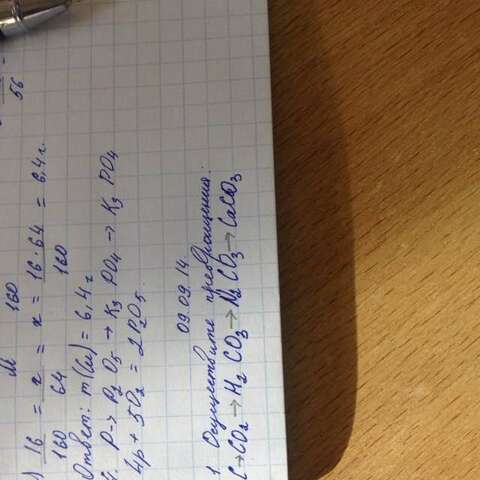 56
M 160
16 = x = x = 16 · 64 = 6,4 г.
160 64 160
Ответ: m(Cu) = 6,4 г
4. P → P₂O₅ → K₃ PO₄ → K₃ PO₄
4p + 5O₂ = 2P₂O₅.
09.09.14.
1 Осуществите превращения:
C → CO₂ → H₂ CO₃ → Na₂ CO₃ → CaCO₃